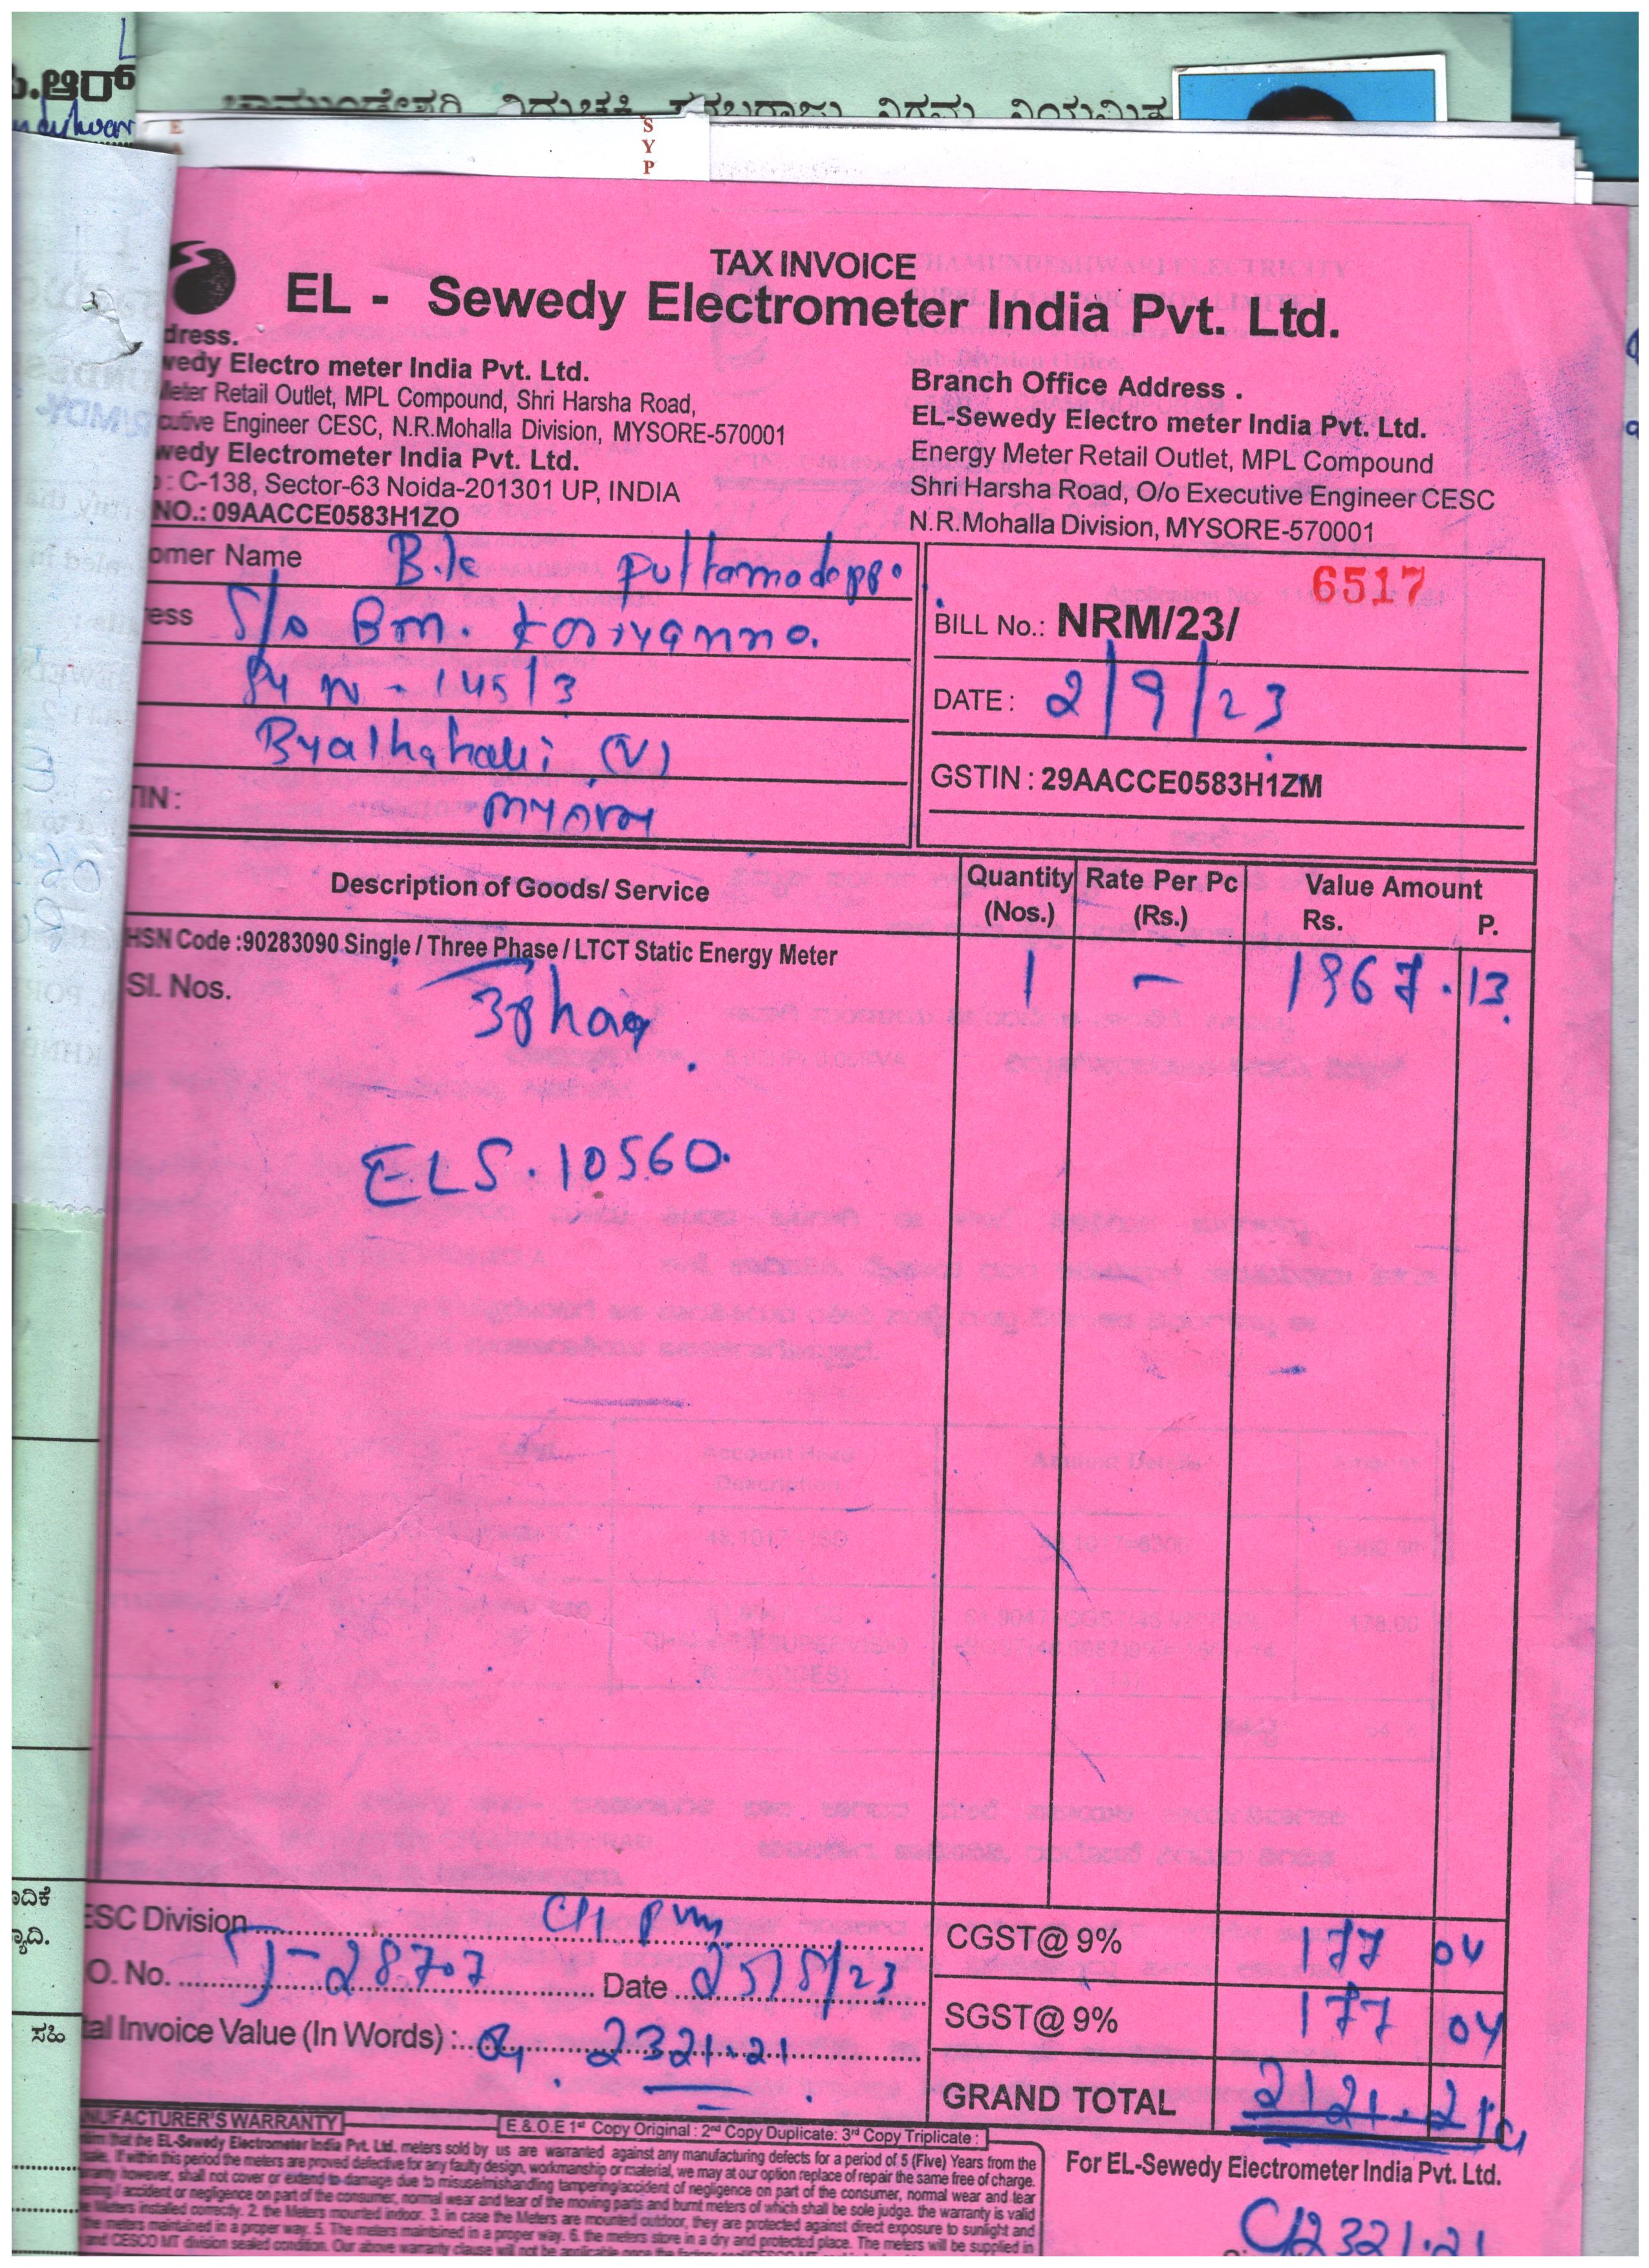 .ಆರ್
ಚಾಮುಂಡೇಶ್ವರಿ ವಿದ್ಯುಚ್ಛಕ್ತಿ ಸರಬರಾಜು ನಿಗಮ ನಿಯಮಿತ
S
Y
P
TAX INVOICE
EL - Sewedy Electrometer India Pvt. Ltd.
dress.
wedy Electro meter India Pvt. Ltd.
Meter Retail Outlet, MPL Compound, Shri Harsha Road,
cutive Engineer CESC, N.R.Mohalla Division, MYSORE-570001
wedy Electrometer India Pvt. Ltd.
: C-138, Sector-63 Noida-201301 UP, INDIA
NO.: 09AACCE0583H1ZO
Branch Office Address .
EL-Sewedy Electro meter India Pvt. Ltd.
Energy Meter Retail Outlet, MPL Compound
Shri Harsha Road, O/o Executive Engineer CESC
N.R.Mohalla Division, MYSORE-570001
omer Name B.K puttamadappa
ess S/o Bm. Kariyanna.
Sy N - 145/3
Byalhahalli (V)
TIN: mysore
6517
BILL No.: NRM/23/
DATE : 2/9/23
GSTIN : 29AACCE0583H1ZM
Description of Goods/ Service Quantity (Nos.) Rate Per Pc (Rs.) Value Amount Rs. P.
HSN Code :90283090 Single / Three Phase / LTCT Static Energy Meter 1 - 1967.13
Sl. Nos.
ELS.10560.
ESC Division
.O. No. SJ-28707 Date 25/8/23
tal Invoice Value (In Words) : 2321.21
CGST@ 9% 177 04
SGST@ 9% 177 04
GRAND TOTAL 2121.21
ಸಹಿ
NUFACTURER'S WARRANTY
E.& O.E 1st Copy Original : 2nd Copy Duplicate: 3rd Copy Triplicate :
that the EL-Sewedy Electrometer India Pvt. Ltd. meters sold by us are warranted against any manufacturing defects for a period of 5 (Five) Years from the
sale. If within this period the meters are proved defective for any faulty design, workmanship or material, we may at our option replace of repair the same free of charge.
however, shall not cover or extend to damage due to misuse/mishandling tampering/accident of negligence on part of the consumer, normal wear and tear
/ accident or negligence on part of the consumer, normal wear and tear of the moving parts and burnt meters of which shall be sole judge. the warranty is valid
Meters installed correctly. 2. the Meters mounted indoor. 3. in case the Meters are mounted outdoor, they are protected against direct exposure to sunlight and
the meters maintained in a proper way. 5. The meters maintained in a proper way. 6. the meters store in a dry and protected place. The meters will be supplied in
and CESCO MT division sealed condition. Our above warranty clause will not be applicable once the
For EL-Sewedy Electrometer India Pvt. Ltd.
2321.21